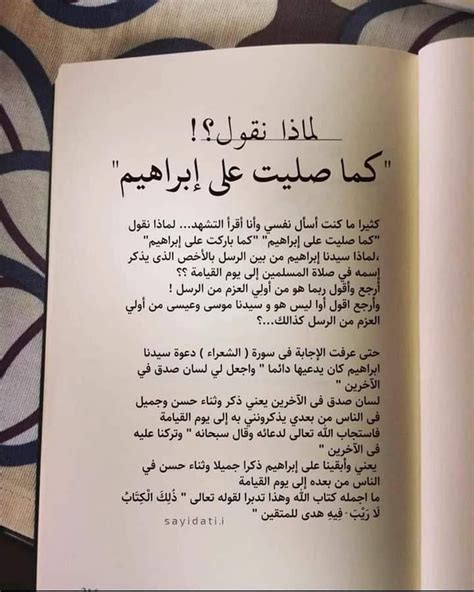 لماذا نقول؟!
"كما صليت على إبراهيم"
كثيرا ما كنت أسأل نفسي وأنا أقرأ التشهد... لماذا نقول
"كما صليت على إبراهيم" "كما باركت على إبراهيم"
،لماذا سيدنا إبراهيم من بين الرسل بالأخص الذى يذكر
إسمه في صلاة المسلمين إلى يوم القيامة ؟؟
أرجع وأقول ربما هو من أولي العزم من الرسل !
وأرجع اقول أوا ليس هو و سيدنا موسى وعيسى من أولي
العزم من الرسل كذالك...؟
حتى عرفت الإجابة فى سورة ( الشعراء ) دعوة سيدنا
ابراهيم كان يدعيها دائما " واجعل لي لسان صدق في
الآخرين "
لسان صدق فى الآخرين يعني ذكر وثناء حسن وجميل
فى الناس من بعدي يذكرونني به إلى يوم القيامة
فاستجاب الله تعالى لدعائه وقال سبحانه " وتركنا عليه
فى الآخرين "
يعني وأبقينا على إبراهيم ذكرا جميلا وثناء حسن في
الناس من بعده إلى يوم القيامة
ما اجمله كتاب الله وهذا تدبرا لقوله تعالى " ذَلِكَ الْكِتَابُ
لَا رَيْبَ ۛ فِيهِ هدى للمتقين "
sayidati.i